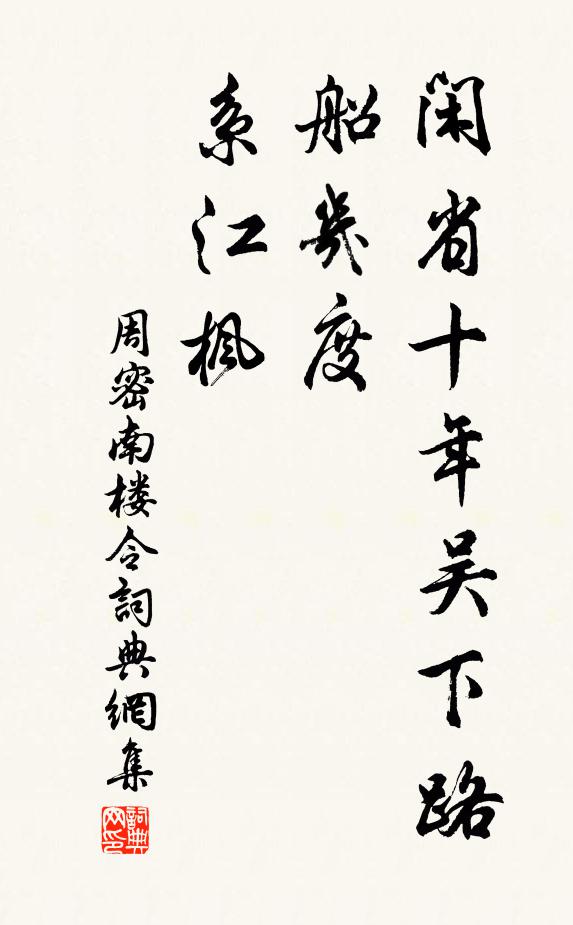 閑省十年吴下路
船幾度
系江楓
周密南楼令詞典網集
詞典网印